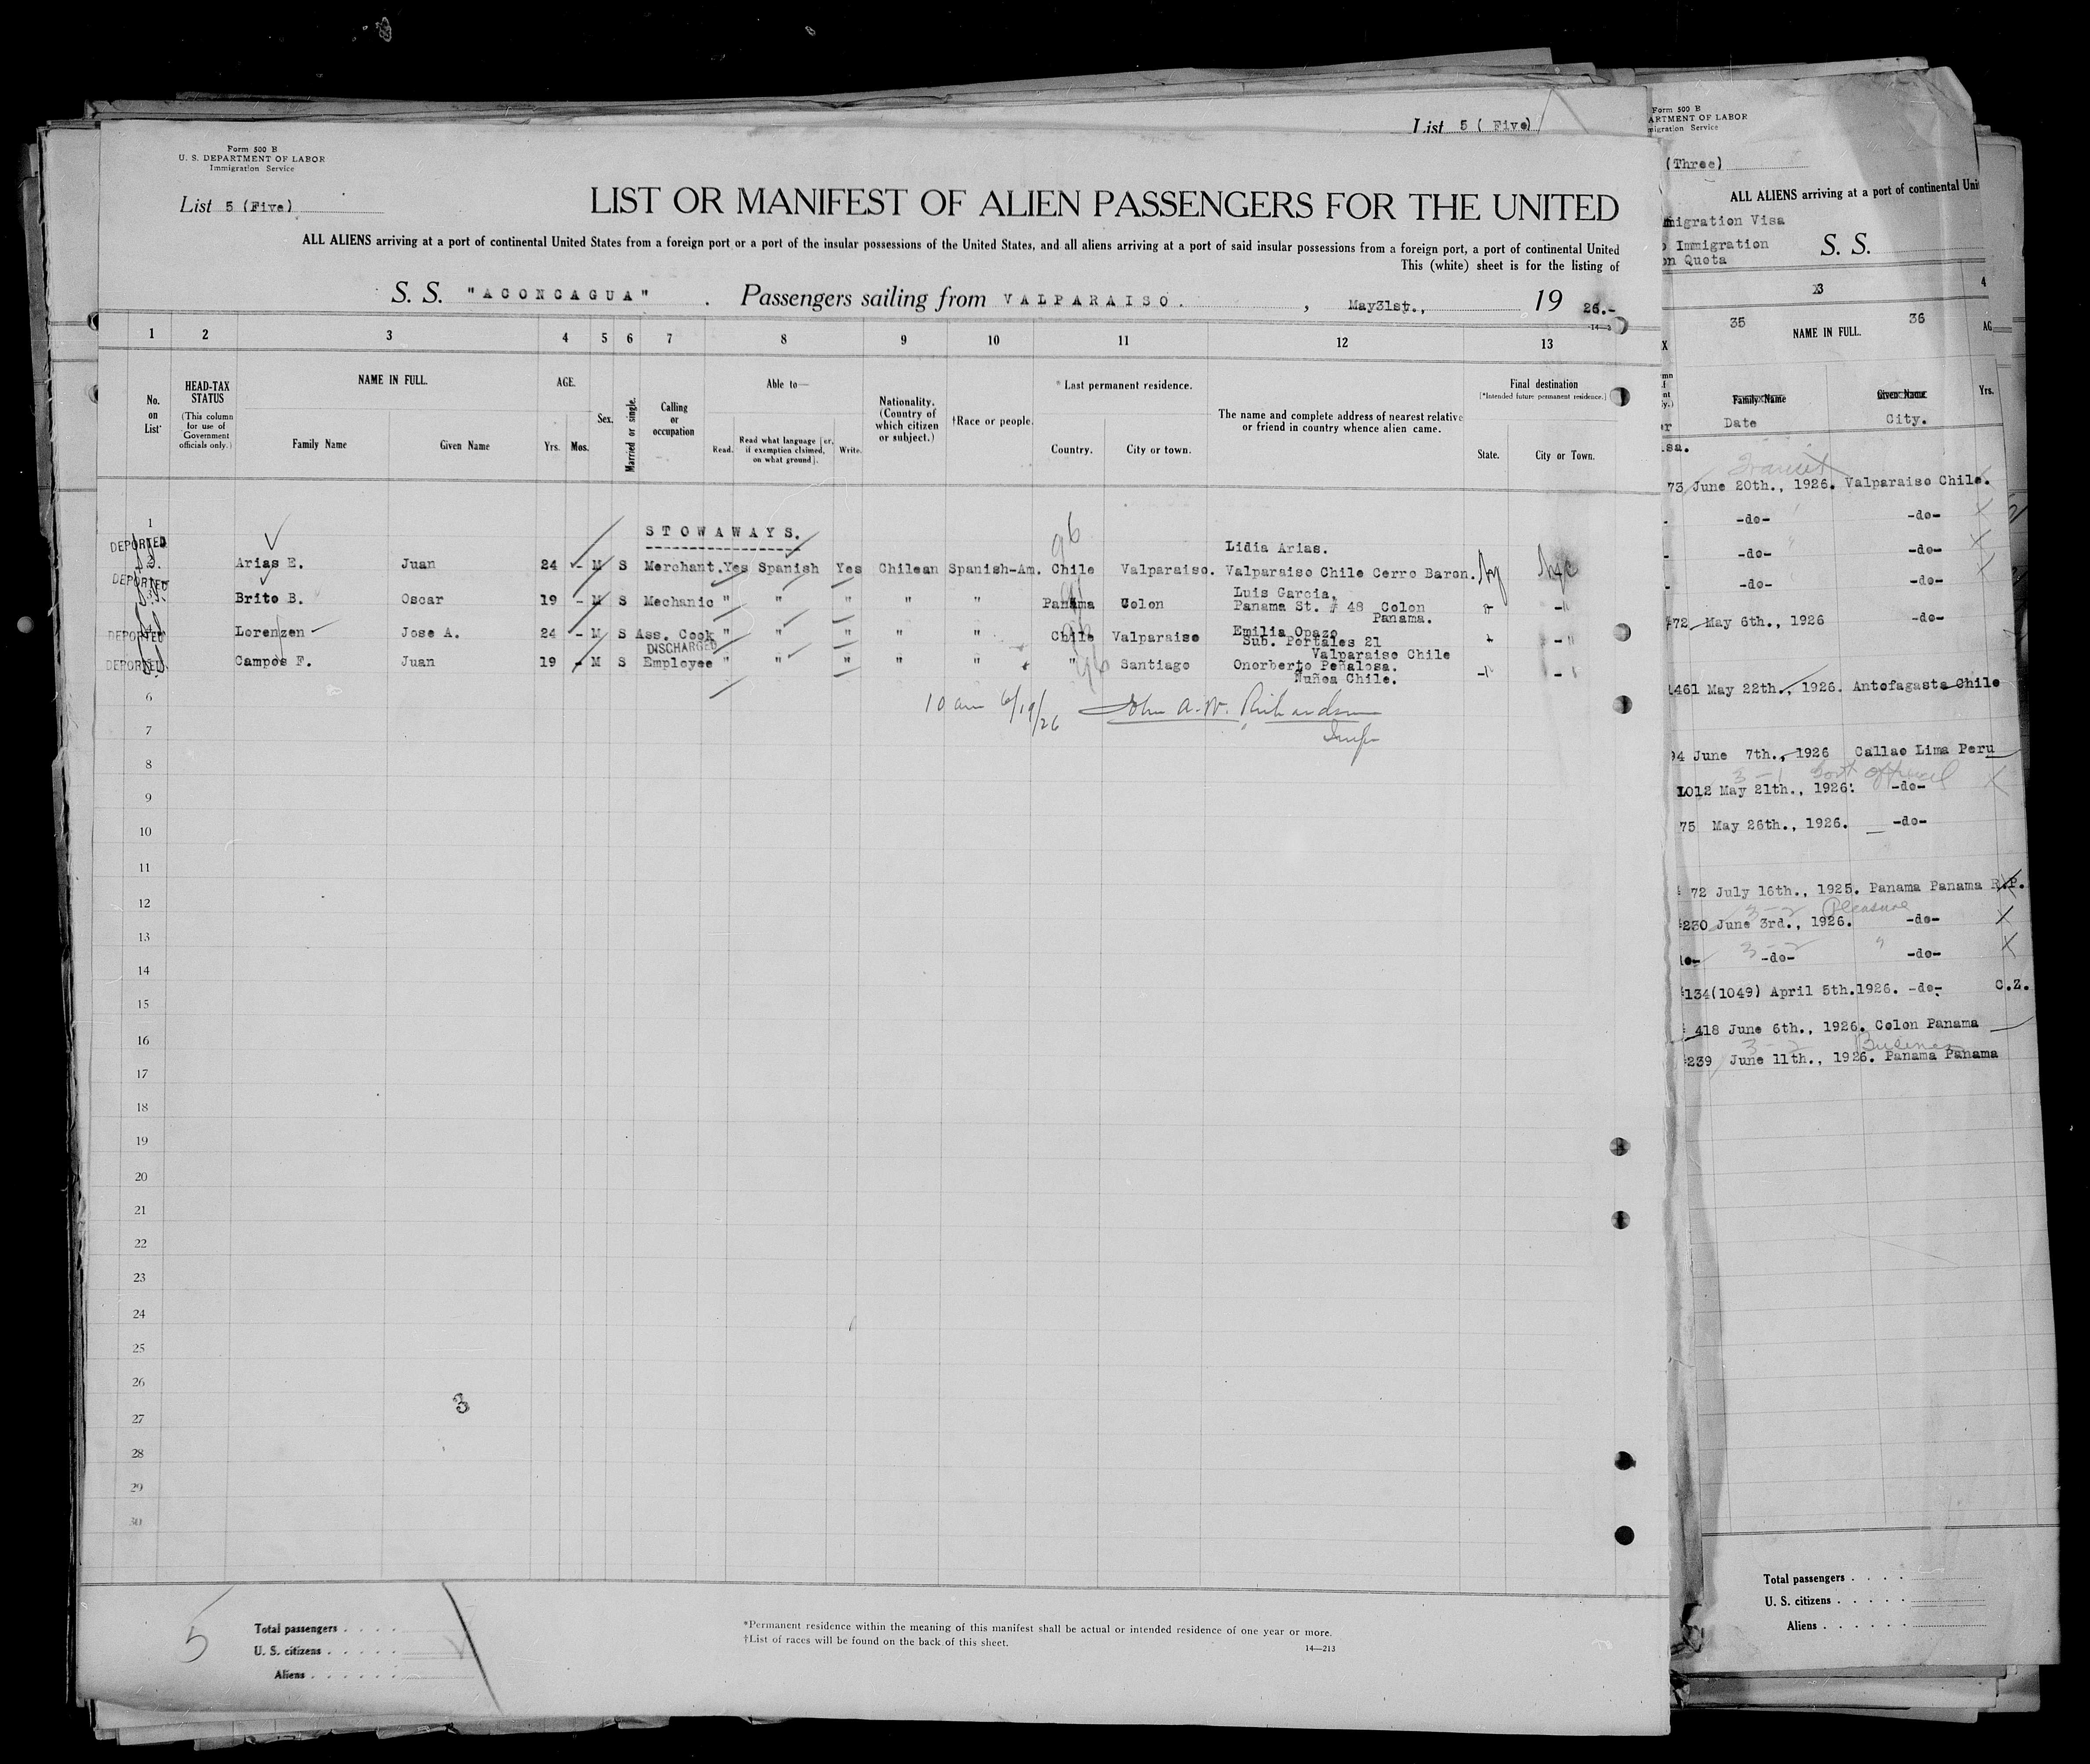 List 5 ( Five)
Form 500 B
U. S. DEPARTMENT OF LABOR
Immigration Service
List 5 (Five)
LIST OR MANIFEST OF ALIEN PASSENGERS FOR THE UNITED
ALL ALIENS arriving at a port of continental United States from a foreign port or a port of the insular possessions of the United States, and all aliens arriving at a port of said insular possessions from a foreign port, a port of continental United
This (white) sheet is for the listing of
S. S. "ACONCAGUA" . Passengers sailing from VALPARAISO. , May31st., 19 26.-
1 2 3 4 5 6 7 8 9 10 11 12 13
No. on List
HEAD-TAX STATUS
(This column for use of Government officials only.)
NAME IN FULL.
Family Name Given Name
AGE.
Yrs. Mos.
Sex.
Married or single.
Calling or occupation
Able to—
Read. Read what language [or, if exemption claimed, on what ground]. Write.
Nationality. (Country of which citizen or subject.)
†Race or people.
*Last permanent residence.
Country. City or town.
The name and complete address of nearest relative or friend in country whence alien came.
Final destination
(*Intended future permanent residence.)
State. City or Town.
1
STOWAWAYS.
DEPORTED
Lidia Arias.
Arias E. Juan 24 - M S Merchant. Yes Spanish Yes Chilean Spanish-Am. Chile Valparaiso. Valparaiso Chile Cerro Baron. Ny
DEPORTED
Luis Garcia,
Brito B. Oscar 19 - M S Mechanic " " " " " Panama Colon Panama St. # 48 Colon
Panama.
DEPORTED
Lorenzen Jose A. 24 - M S Ass. Cook " " " " " Chile Valparaiso Emilia Opazo
Sub. Portales 21
Valparaiso Chile
DISCHARGED
DEPORTED
Campos F. Juan 19 - M S Employee " " " " " " Santiago Onorberto Peñalosa.
Ñuñoa Chile.
6
10 am 6/19/26 John A. W. Richardson
Insp
7
8
9
10
11
12
13
14
15
16
17
18
19
20
21
22
23
24
25
26
27
28
29
30
3
5
Total passengers . . . .
U. S. citizens . . . . .
Aliens . . . . . .
*Permanent residence within the meaning of this manifest shall be actual or intended residence of one year or more.
†List of races will be found on the back of this sheet.
14—213
Form 500 B
ARTMENT OF LABOR
migration Service
(Three)
ALL ALIENS arriving at a port of continental Uni
migration Visa
Immigration
on Quota
S. S.
3 4
35 36
NAME IN FULL.
AG
Family Name Given Name Yrs.
Date City.
sa.
Transit
73 June 20th., 1926. Valparaiso Chile.
-do- -do-
-do- -do-
-do- -do-
#72 May 6th., 1926 -do-
461 May 22th., 1926. Antofagasta Chile
94 June 7th., 1926 Callao Lima Peru
3-1 Govt official
1012 May 21th., 1926. -do-
75 May 26th., 1926. -do-
72 July 16th., 1925. Panama Panama R.P.
3-2 Pleasure
#230 June 3rd., 1926. -do-
3-2 "
do- -do- -do-
#134(1049) April 5th.1926. -do- C.Z.
418 June 6th., 1926. Colon Panama
3-2 Business
#239 June 11th., 1926. Panama Panama
Total passengers . . . .
U. S. citizens . . . . .
Aliens . . . . . .